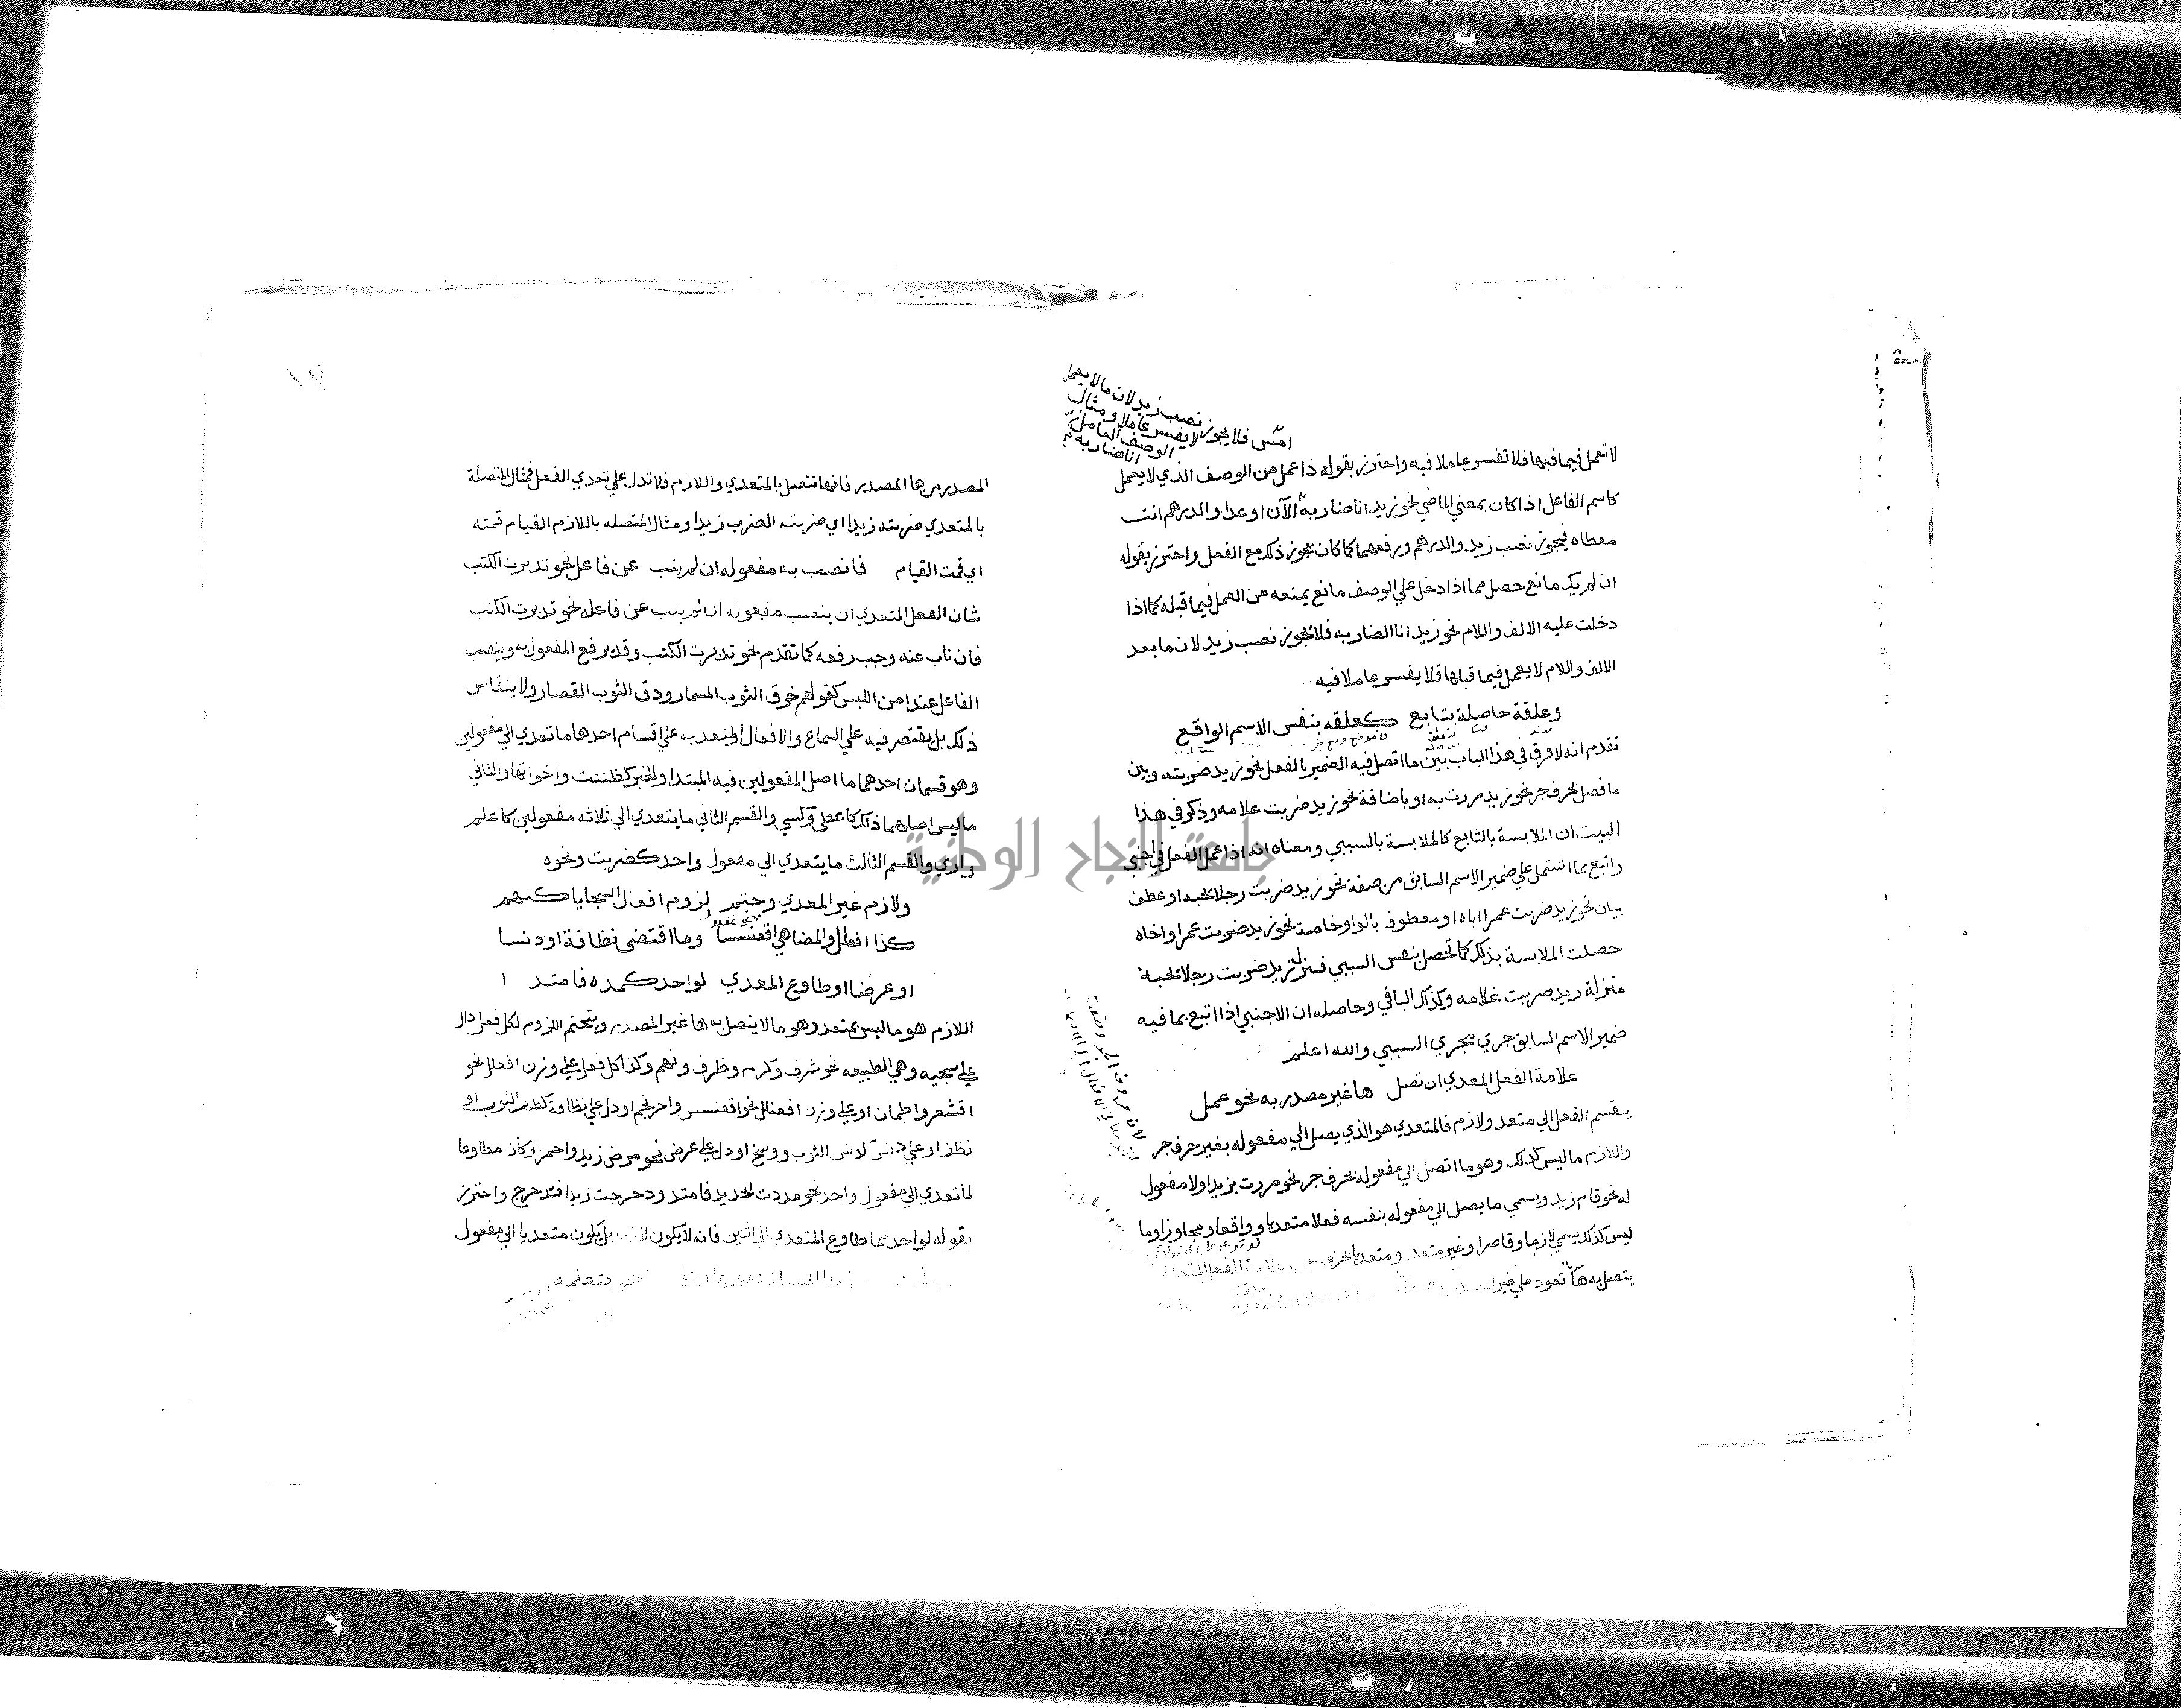 امس فلا يجوز نصب زيد لان ما لا يعمل
لا يفسر عاملا ومثال
الوصف العامل
انا ضاربه
لا تعمل فيما قبلها فلا تفسر عاملا فيه واحترز بقوله ذا عمل من الوصف الذي لا يعمل
كاسم الفاعل اذا كان بمعني الماضي نحو زيد انا ضاربه الآن او غدا والدرهم انت
معطاه فيجوز نصب زيد والدرهم ورفعهما كما كان يجوز ذلك مع الفعل واحترز بقوله
ان لم يك مانع حصل مما اذا دخل علي الوصف مانع يمنعه من العمل فيما قبله كما اذا
دخلت عليه الالف واللام نحو زيد انا الضاربه فلا يجوز نصب زيد لان ما بعد
الالف واللام لا يعمل فيما قبلها فلا يفسر عاملا فيه
وعلقة حاصلة بتابع كعلقه بنفس الاسم الواقع
تقدم انه لا فرق في هذا الباب بين ما اتصل فيه الضمير بالفعل نحو زيد ضربته وبين
ما فصل بحرف جر نحو زيد مررت به او باضافة نحو زيد ضربت غلامه وذكر في هذا
البيت ان الملابسة بالتابع كالملابسة بالسببي ومعناه انه اذا عمل الفعل في اجنبي
واتبع بما اشتمل علي ضمير الاسم السابق من صفة نحو زيد ضربت رجلا يحبه او عطف
بيان نحو زيد ضربت عمرا اباه او معطوف بالواو خاصة نحو زيد ضربت عمرا واخاه
حصلت الملابسة بذلك كما تحصل بنفس السببي فينزل زيد ضربت رجلا يحبه
منزلة زيد ضربت غلامه وكذلك الباقي وحاصله ان الاجنبي اذا اتبع بما فيه
ضمير الاسم السابق جري مجري السببي والله اعلم
علامة الفعل المعدي ان تصل ها غير مصدر به نحو عمل
ينقسم الفعل الي متعد ولازم فالمتعدي هو الذي يصل الي مفعوله بغير حرف جر
واللازم ما ليس كذلك وهو ما اتصل الي مفعوله بحرف جر نحو مررت بزيد او لا مفعول
له نحو قام زيد ويسمي ما يصل الي مفعوله بنفسه فعلا متعديا وواقعا ومجاوزا وما
ليس كذلك يسمي لازما وقاصرا وغير متعد ومتعديا بحرف جر وعلامة الفعل المتعدي
يتصل به ها تعود علي غير
المصدر من ها المصدر فانها تتصل بالمتعدي واللازم فلا تدل علي تعدي الفعل فمثال المتصلة
بالمتعدي ضربته زيدا اي ضربت الضرب زيدا ومثال المتصله باللازم القيام قمته
اي قمت القيام فانصب به مفعوله ان لم ينب عن فاعل نحو تدبرت الكتب
شان الفعل المتعدي ان ينصب مفعوله ان لم ينب عن فاعله نحو تدبرت الكتب
فان ناب عنه وجب رفعه كما تقدم نحو تدبرت الكتب وقد يرفع المفعول به وينصب
الفاعل عند امن اللبس كقولهم خرق الثوب المسمار ودق الثوب القصار ولا ينقاس
ذلك بل يقتصر فيه علي السماع والافعال المتعديه علي اقسام احدها ما تعدي الي مفعولين
وهو قسمان احدهما ما اصل المفعولين فيه المبتدا والخبر كظننت واخواتها والثاني
ما ليس اصلهما ذلك كاعطي وكسي والقسم الثاني ما يتعدي الي ثلاثه مفعولين كاعلم
واري والقسم الثالث ما يتعدي الي مفعول واحد كضربت ونحوه
ولازم غير المعدي وحتم لزوم افعال السجايا كنهم
كذا افعلل والمضاهي اقعنسسا وما اقتضي نظافة او دنسا
او عرضا او طاوع المعدي لواحد كمده فامتدا
اللازم هو ما ليس بمتعد وهو ما لا يتصل به ها غير المصدر ويتحتم اللزوم لكل فعل دال
علي سجيه وهي الطبيعه نحو شرف وكرم وظرف ونهم وكذا كل فعل علي وزن افعلل نحو
اقشعر واطمان او علي وزن افعنلل نحو اقعنسس واحرنجم او دل علي نظافة كطهر الثوب او
نظف او علي دنس كدنس الثوب ووسخ او دل علي عرض نحو مرض زيد واحمر او كان مطاوعا
لما تعدي الي مفعول واحد نحو مددت الحديد فامتد ودحرجت زيدا فتدحرج واحترز
بقوله لواحد مما طاوع المتعدي الي اثنين فانه لا يكون لازما بل يكون متعديا الي مفعول
جامعة النجاح الوطنية